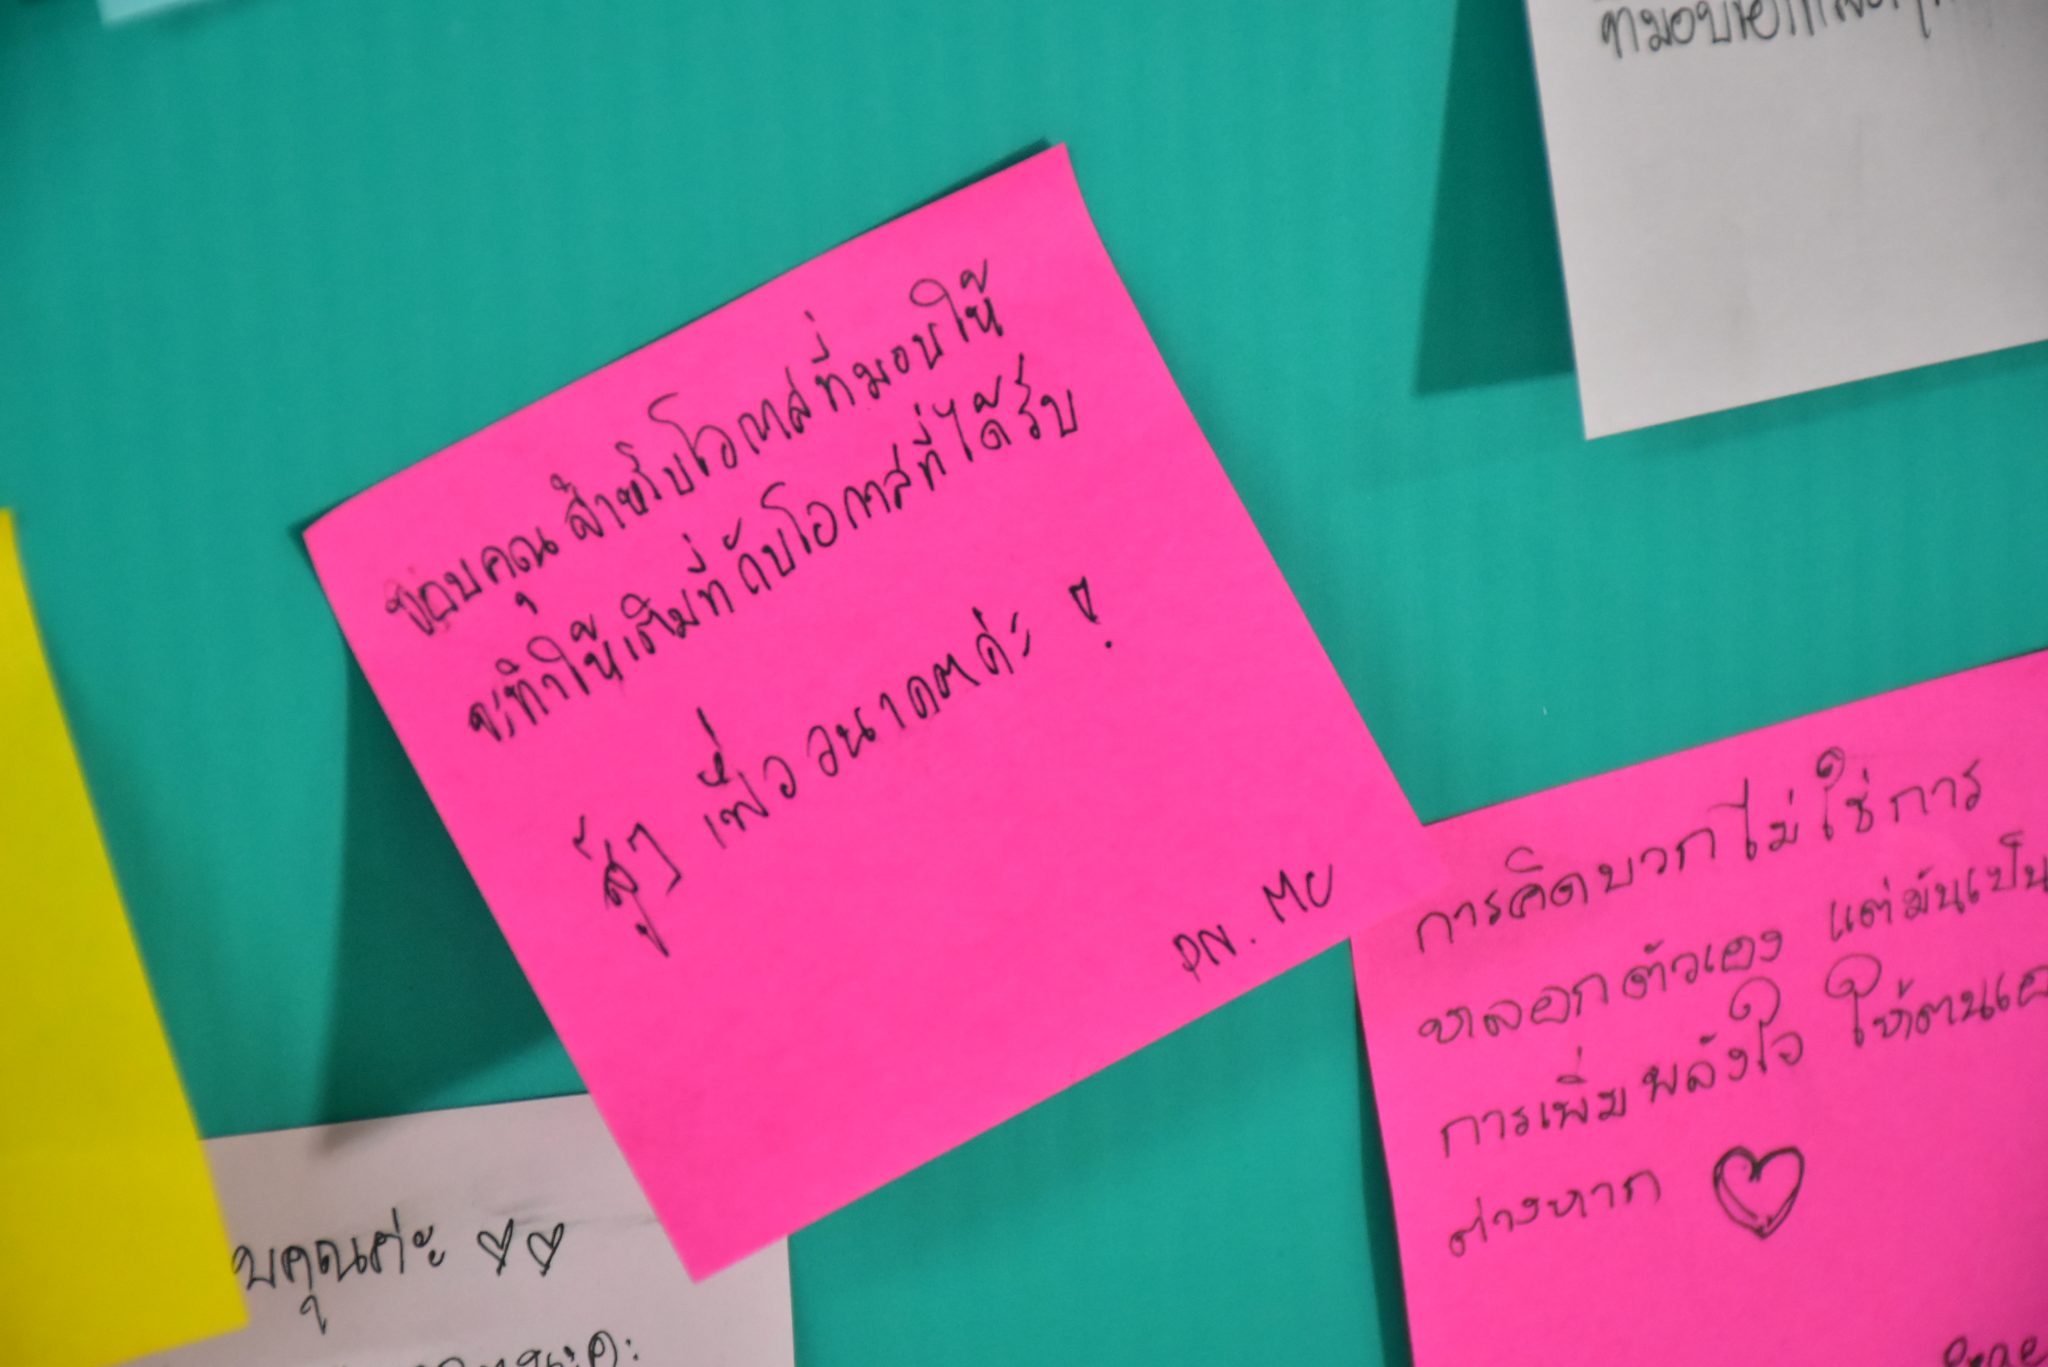 ขอบคุณสำหรับโอกาสที่มอบให้
จะทำให้เต็มที่กับโอกาสที่ได้รับ
สู้ๆ เพื่ออนาคตค่ะ !
PN. MU
การคิดบวกไม่ใช่การ
หลอกตัวเอง แต่มันเป็น
การเพิ่มพลังใจ ให้ตนเอ
ต่างหาก
บคุณค่ะ